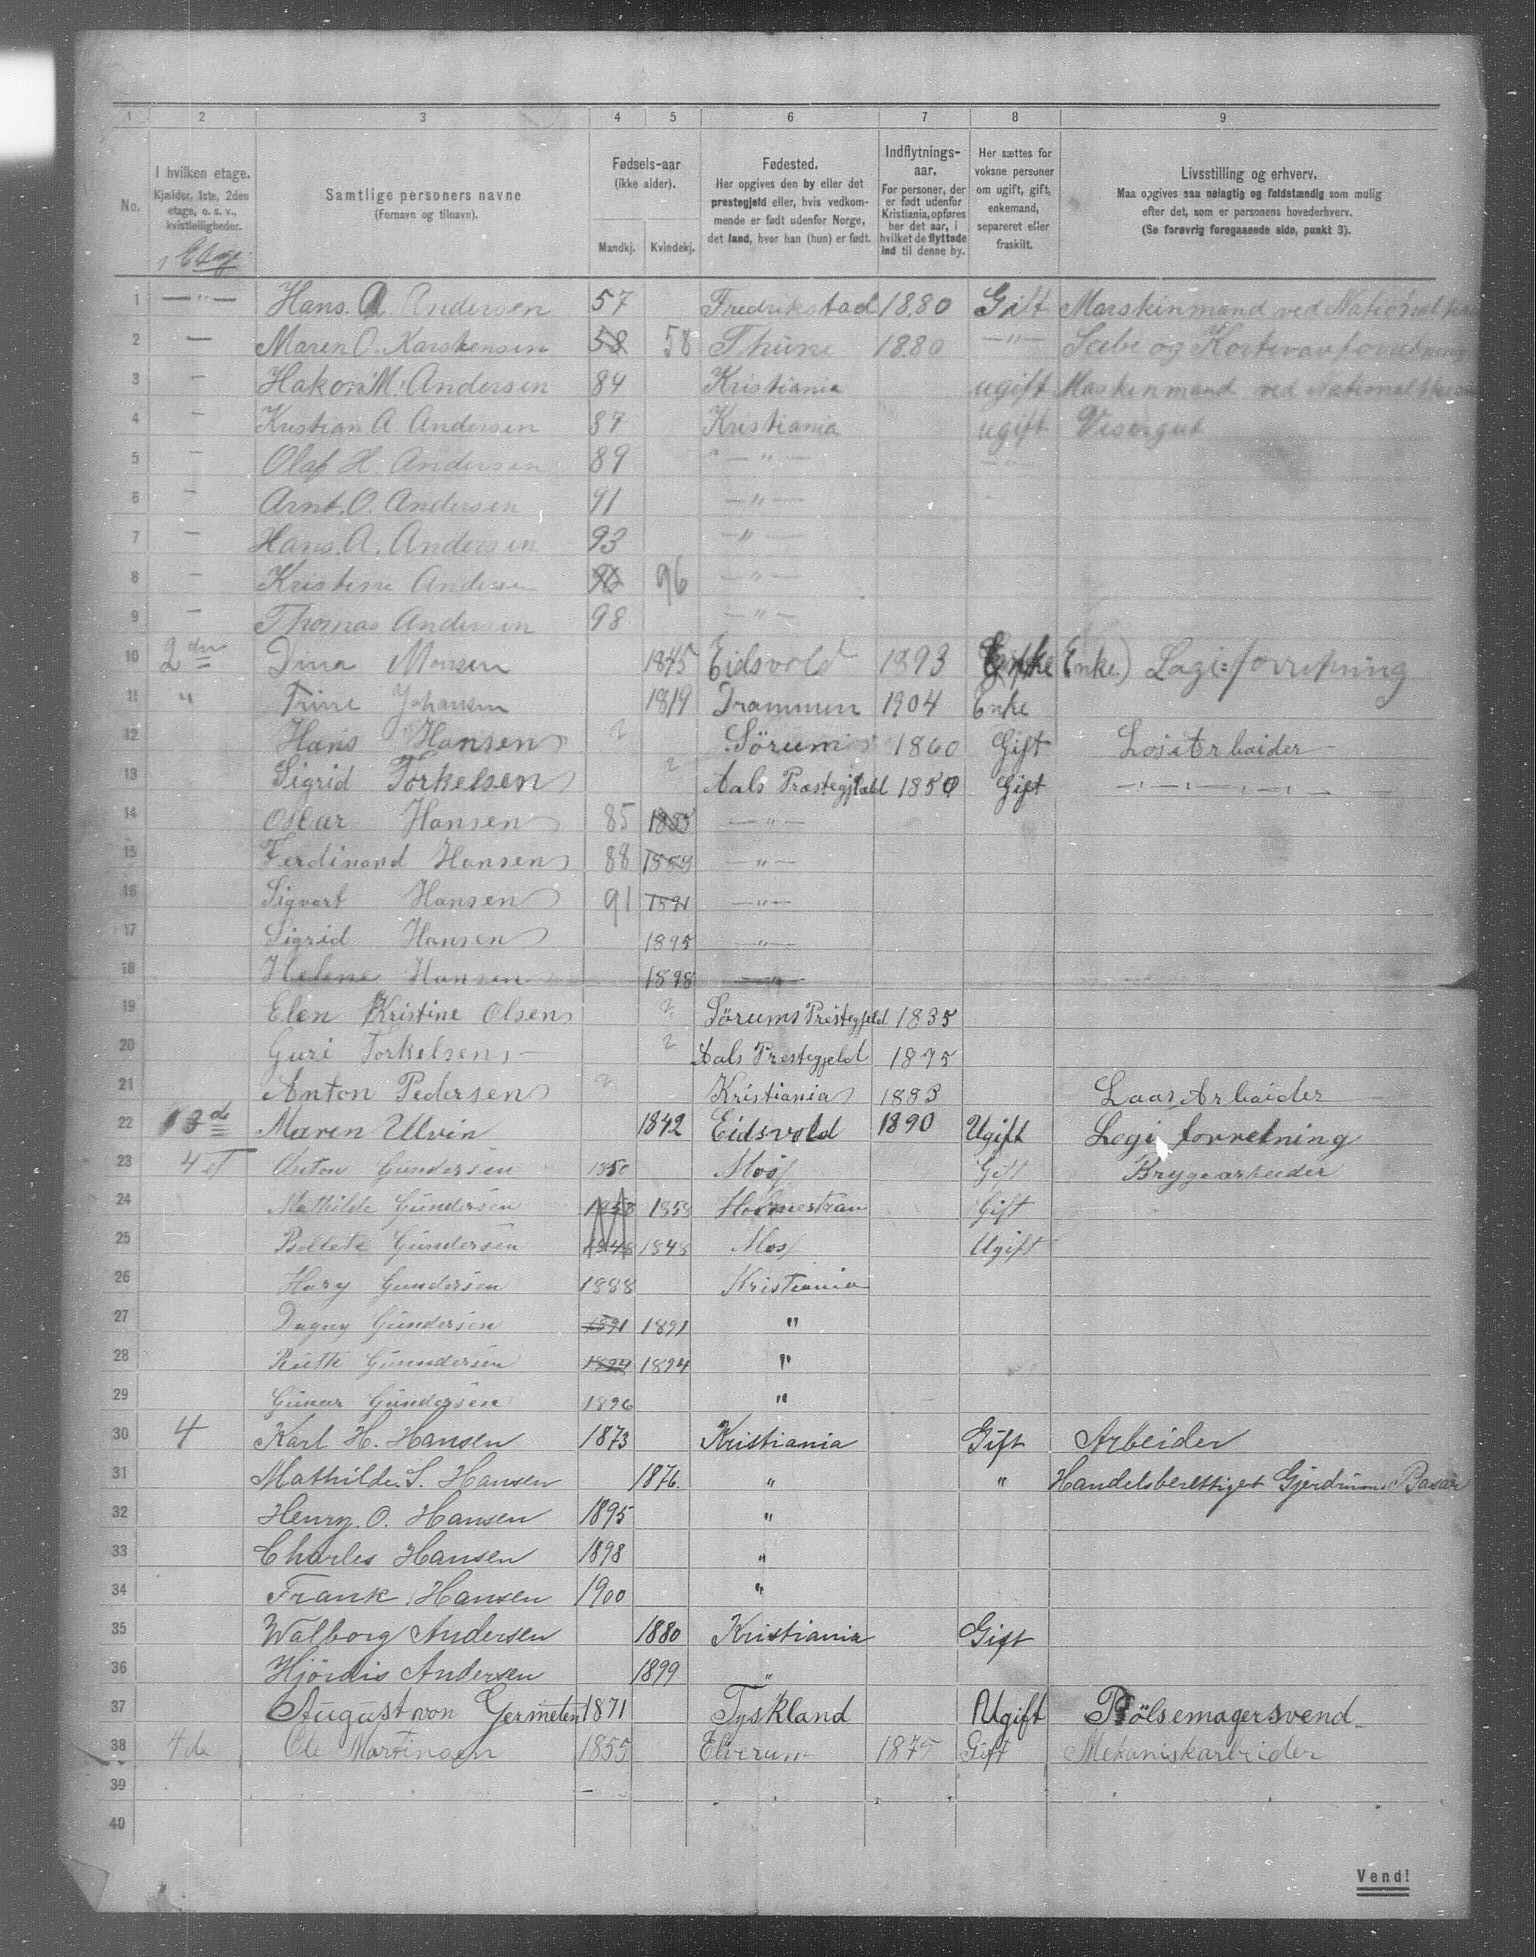 1 2 3 4 5 6 7 8 9
No.
I hvilken etage.
Kjælder, 1ste, 2den
etage, o. s. v.,
kvistleiligheder.
1 Etage
Samtlige personers navne
(Fornavn og tilnavn).
Fødsels-aar
(ikke alder).
Mandkj. Kvindekj.
Fødested.
Her opgives den by eller det
prestegjeld eller, hvis vedkom-
mende er født udenfor Norge,
det land, hvor han (hun) er født.
Indflytnings-
aar.
For personer, der
er født udenfor
Kristiania, opføres
her det aar, i
hvilket de flyttede
ind til denne by.
Her sættes for
voksne personer
om ugift, gift,
enkemand,
separeret eller
fraskilt.
Livsstilling og erhverv.
Maa opgives saa nøiagtig og fuldstændig som mulig
efter det, som er personens hovederhverv.
(Se forøvrig foregaaende side, punkt 3).
1 —"— Hans. A Andersen 57 Fredrikstad 1880 Gift Marskinmand ved National
2 — Maren O. Karstensen 58 58 Thune 1880 —"— Sæbe og
3 — Hakon M. Andersen 84 Kristiania ugift Maskinmand ved National
4 — Kristian A Andersen 87 Kristiania ugift Visergut
5 — Olaf H. Andersen 89 —"— —"—
6 — Arnt. O. Andersen 91 —"—
7 — Hans. A. Andersen 93 —"—
8 — Kristine Andersen 96 —"—
9 — Thomas Andersen 98 —"—
10 2den Dina Monsen 1845 Eidsvold 1893 Enke (Enke) Logi=forretning
11 " Trine Johansen 1819 Drammen 1904 Enke
12 Hans Hansen ? Sörum 1860 Gift LosiArbaider
13 Sigrid Torkelsen ? Aals Præstegjæld 1850 Gift —"—"—"—
14 Oskar Hansen 85 1885 —"—
15 Ferdinand Hansen 88 1888 —"—
16 Sigvart Hansen 91 1891 —"—
17 Sigrid Hansen 1895 —"—
18 Helene Hansen 1898 —"—
19 Elen Kristine Olsen ? Sörums Prestegjeld 1835
20 Guri Torkelsen ? Aals Prestegjeld 1875
21 Anton Pedersen ? Kristiania 1883 Arbaider
22 3de Maren Ulvin 1842 Eidsvold 1890 Ugift Logi forretning
23 4 et Anton Gundersen 1850 Moss Gift Bryggearbeider
24 Mathilde Gundersen 1858 1858 Holmestran Gift
25 Gundersen 1848 1848 Moss Ugift
26 Hary Gundersen 1888 Kristiania
27 Dagny Gundersen 1891 1891 "
28 Ruth Gunndersen 1894 1894 "
29 Gunar Gundersen 1896 "
30 4 Karl H. Hansen 1873 Kristiania Gift Arbeider
31 Mathilde. S. Hansen 1876. " " Handelsberettiget Gjerdrums Basar
32 Henry. O. Hansen 1895 "
33 Charles Hansen 1898 "
34 Frank. Hansen 1900 "
35 Walborg Andersen 1880 Kristiania Gift
36 Hjördis Andersen 1899 "
37 August von Germeten 1871 Tyskland Ugift Pölsemagersvend
38 4de Ole Martinsen 1855 Elverum 1875 Gift Mekaniskarbeider
39
40
Vend!